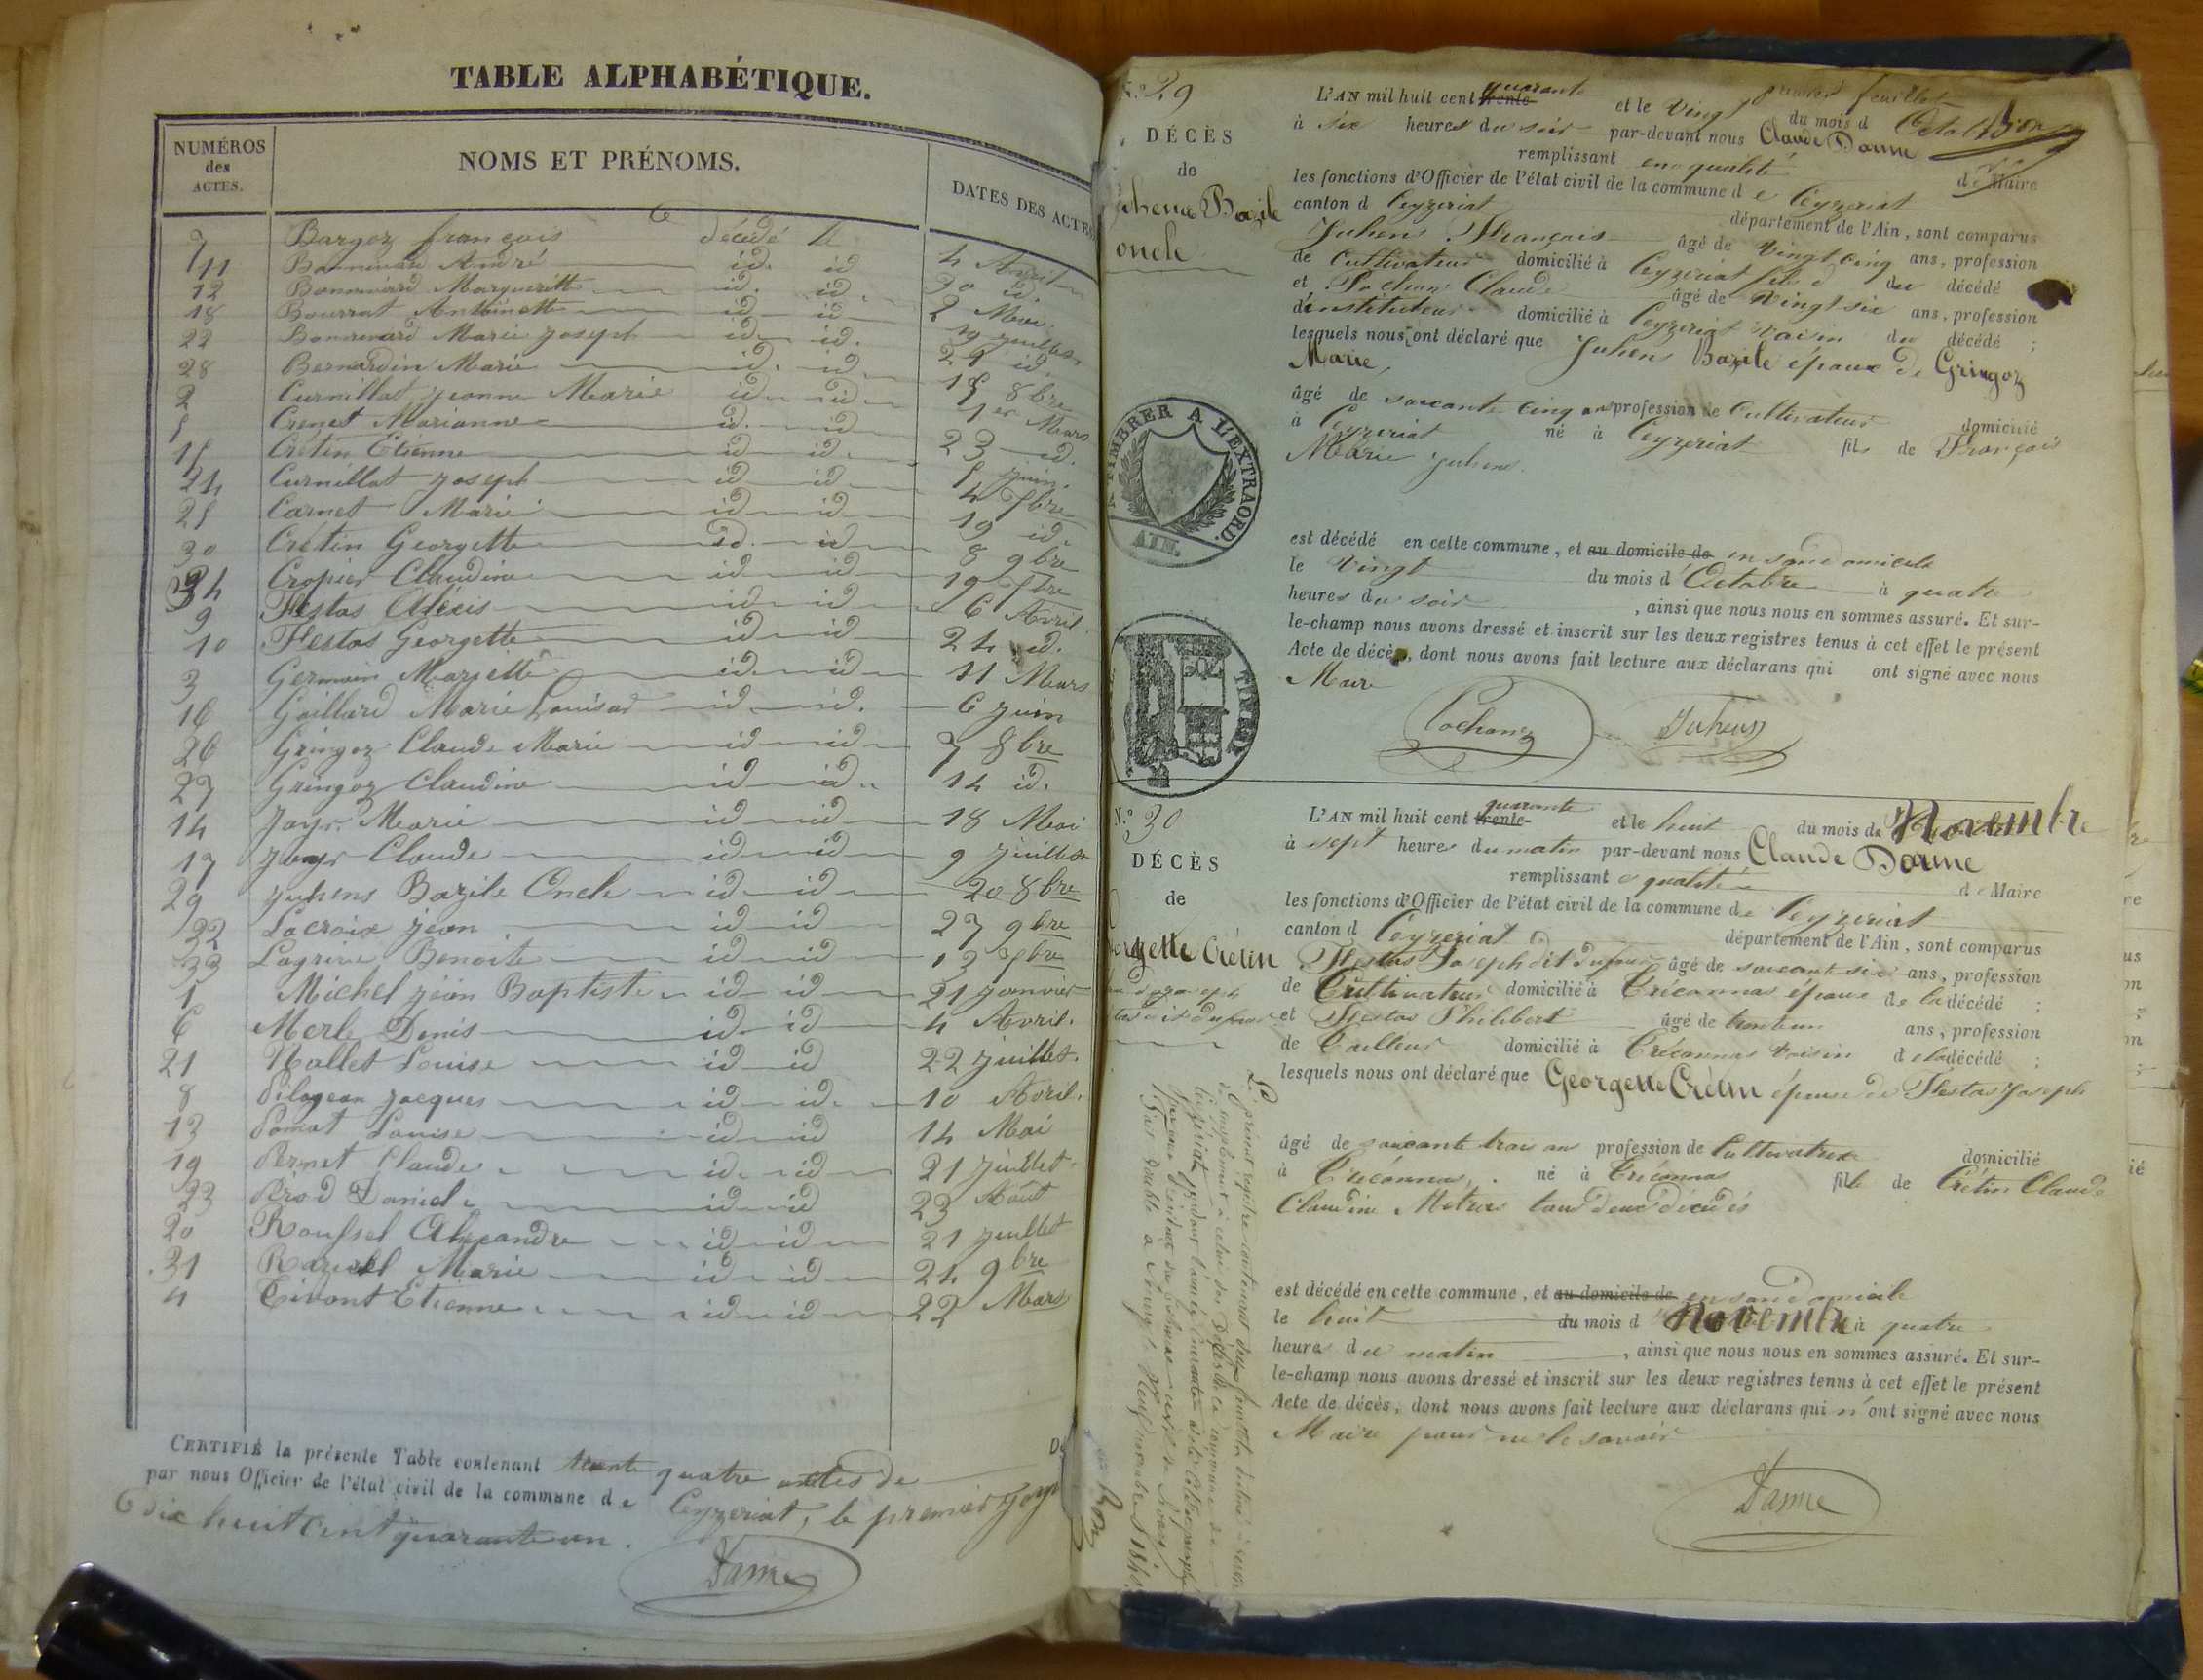 TABLE ALPHABÉTIQUE.
NUMÉROS
des
ACTES.
NOMS ET PRÉNOMS.
DATES DES ACTES
Bargoz françois décédé le 4 Avril
11 Bonnevard André id. id 30 id.
12 Bonnevard Margueritte id. id. 2 Mai
18 Bourrat Anthinette id id 19 juillet
22 Bonnevard Marie joseph id. id. 29 id.
28 Bernardin Marie id. id. 15 8bre
2 Curnillat jeanne Marie id. id. 1er Mars
5 Crenet Marianne id. id 23 id.
15 Crétin Etienne id id. 5 juin.
24 Curnillat joseph id id 4 7bre
25 Carnet Marie id id 19 id.
30 Crétin Georgette id. id 8 9bre
34 Cropier Claudine id id 19 Xbre
9 Flestas Alexis id id 6 Avril
10 Flestas Georgette id id 24 id.
3 Germain Mariette id. id 11 Mars
16 Gaillard Marie Louise id. id. 6 juin
26 Gringoz Claude Marie id id 7 8bre
27 Gringoz Claudine id id. 14 id.
14 Jayr. Marie id id 18 Mai
17 Jayr Claude id id 9 juillet
29 Juhens Bazile Oncle id id 20 8bre
32 Lacroix jean id id 27 9bre
33 Lagrive Benoite id id 13 Xbre
1 Michel jean Baptiste id id 21 janvier
6 Merle Denis id. id 4 Avril.
21 Nallet Louise id id 22 juillet.
8 Pilojean jacques id id. 10 Avril.
13 Pomat Louise id id 14 Mai
19 Pernet Claude id. id 21 juillet.
23 Prod Daniel id id 23 Août
20 Roussel Alexandre id id 21 juillet
31 Marie id id 24 9bre
4 Tivont Etienne id id 22 Mars
CERTIFIÉ la présente Table contenant trente quatre actes de
par nous Officier de l'état civil de la commune de Ceyzeriat, le premier
dix huit cent quarante un.
N.° 29
DÉCÈS
de
Juhens Bazile
oncle
A TIMBRER A L'EXTRAORD.
AIN.
L'AN mil huit cent trente quarante et le vingt du mois d Octobre
à six heures du soir par-devant nous Claude Danne
remplissant en qualité de Maire
les fonctions d'Officier de l'état civil de la commune de Ceyzeriat
canton d Ceyzeriat département de l'Ain, sont comparus
Juhens François âgé de vingt cinq ans, profession
de Cultivateur domicilié à Ceyzeriat fils du décédé
et Pochon Claude âgé de vingt six ans, profession
d'instituteur domicilié à Ceyzeriat voisin du décédé ;
lesquels nous ont déclaré que Juhens Bazile époux de Gringoz
Marie,
âgé de soixante cinq ans profession de Cultivateur domicilié
à Ceyzeriat né à Ceyzeriat fils de François
Marie Juhens.
est décédé en cette commune, et au domicile de en son domicile
le vingt du mois d'Octobre à quatre
heures du soir , ainsi que nous nous en sommes assuré. Et sur-
le-champ nous avons dressé et inscrit sur les deux registres tenus à cet effet le présent
Acte de décès, dont nous avons fait lecture aux déclarans qui ont signé avec nous
Maire
Juhens
N.° 30
DÉCÈS
de
Georgette Crétin
L'AN mil huit cent trente- quarante et le huit du mois de Novembre
à sept heures du matin par-devant nous Claude Danne
remplissant en qualité de Maire
les fonctions d'Officier de l'état civil de la commune de Ceyzeriat
canton d Ceyzeriat département de l'Ain, sont comparus
Flestas Joseph dit âgé de soixante six ans, profession
de Cultivateur domicilié à Tréconnas époux de la décédé ;
et Flestas Philibert âgé de trente un ans, profession
de Tailleur domicilié à Tréconnas voisin de la décédé ;
lesquels nous ont déclaré que Georgette Crétin épouse de Flestas Joseph
âgé de soixante trois ans profession de Cultivatrice domicilié
à Tréconnas. né à Tréconnas fille de Crétin Claude
Claudine tous deux décédés
est décédé en cette commune, et au domicile de en son domicile
le huit du mois d Novembre à quatre
heures du matin , ainsi que nous nous en sommes assuré. Et sur-
le-champ nous avons dressé et inscrit sur les deux registres tenus à cet effet le présent
Acte de décès, dont nous avons fait lecture aux déclarans qui n'ont signé avec nous
Maire pour ne le savoir
Danne